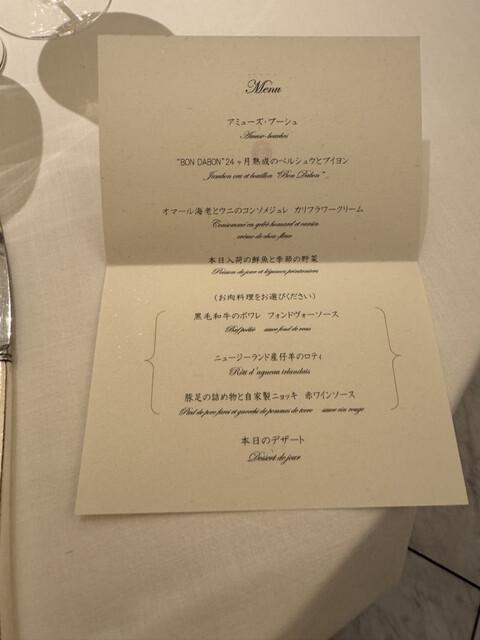 Menu
アミューズ・ブーシュ
Amuse-bouches
"BON DABON"24ヶ月熟成のペルシュウとブイヨン
Jambon cru et bouillon "Bon Dabon"
オマール海老とウニのコンソメジュレ カリフラワークリーム
Consommé en gelée homard et oursin
crème de chou-fleur
本日入荷の鮮魚と季節の野菜
Poisson de jour et légumes printaniers
(お肉料理をお選びください)
黒毛和牛のポワレ フォンドヴォーソース
Bœf poêlée sauce fond de veau
ニュージーランド産仔羊のロティ
Rôti d'agneau irlandais
豚足の詰め物と自家製ニョッキ 赤ワインソース
Pied de porc farci et gnocchi de pommes de terre sauce vin rouge
本日のデザート
Dessert de jour